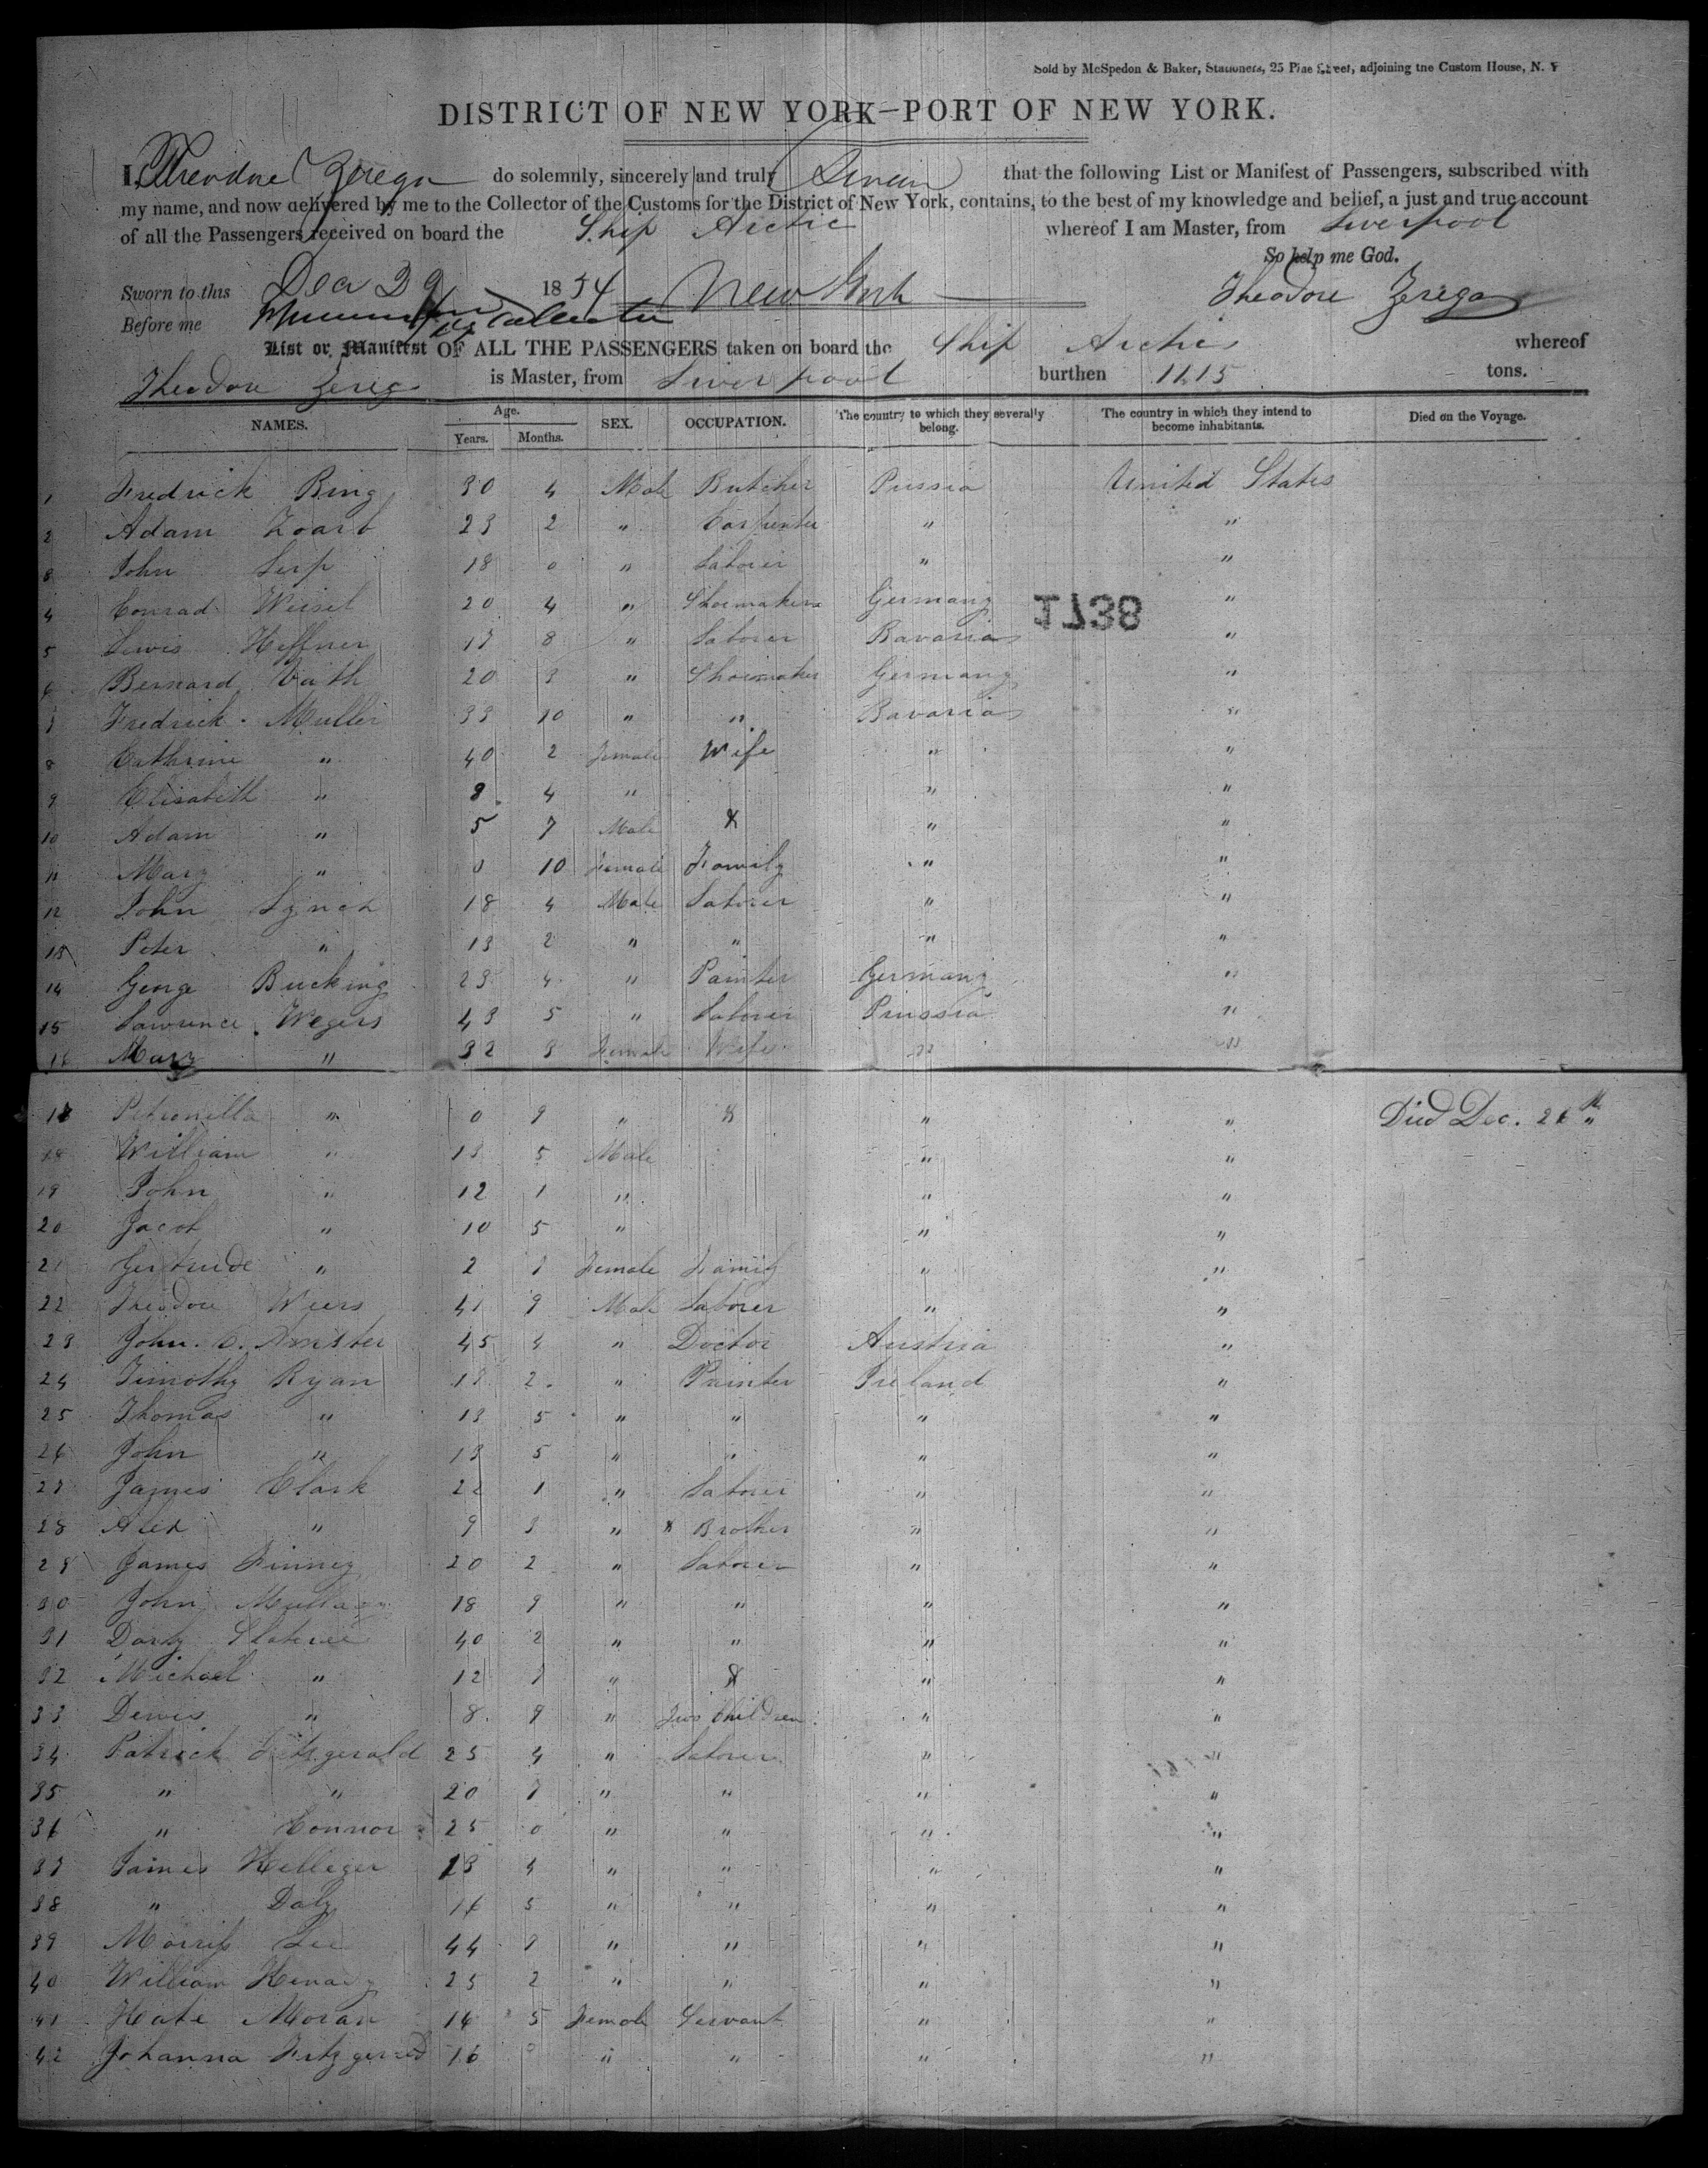 Sold by McSpedon & Baker, Stationers, 25 Pine Street, adjoining the Custom House, N. Y
DISTRICT OF NEW YORK—PORT OF NEW YORK.
I, Theodore Zerega do solemnly, sincerely and truly Swear that the following List or Manifest of Passengers, subscribed with
my name, and now delivered by me to the Collector of the Customs for the District of New York, contains, to the best of my knowledge and belief, a just and true account
of all the Passengers received on board the Ship Arctic whereof I am Master, from Liverpool
So help me God.
Sworn to this Dec 29 1854 New York Theodore Zerega
Before me
List or Manifest OF ALL THE PASSENGERS taken on board the Ship Arctic whereof
Theodore Zerega is Master, from Liverpool burthen 1115 tons.
NAMES. Age. Years. Months. SEX. OCCUPATION. The country to which they severally belong. The country in which they intend to become inhabitants. Died on the Voyage.
1 Fredrick Ring 30 4 Male Butcher Prussia United States
2 Adam 23 2 " Carpenter " "
3 John 18 0 " Laborer " "
4 Conrad Weisel 20 4 " Shoemaker Germany "
1738
5 Lewis Heffner 17 8 " Laborer Bavaria "
6 Bernard Vath 20 3 " Shoemaker Germany "
7 Fredrick Muller 33 10 " " Bavaria "
8 Cathrine " 40 2 Female Wife " "
9 Elisabeth " 8 4 " " "
10 Adam " 5 7 Male & " "
11 Mary " 0 10 Female Family " "
12 John Lynch 18 4 Male Laborer " "
13 Peter " 13 2 " " " "
14 George Bucking 23 4 " Painter Germany "
15 Lawrence Wegers 43 5 " Laborer Prussia "
16 Mary " 32 3 Female Wife " "
17 Petronilla " 0 9 " & " " Died Dec. 26th
18 William " 13 5 Male " "
19 John " 12 1 " " "
20 Jacob " 10 5 " " "
21 Gertrude " 2 1 Female Family " "
22 Theodore Weers 41 9 Male Laborer " "
23 John 45 4 " Doctor Austria "
24 Timothy Ryan 2 " Painter Ireland "
25 Thomas " 13 5 " " " "
26 John " 13 5 " " " "
27 James Clark 22 1 " Laborer " "
28 Alex " 9 3 " Brother " "
29 James Finney 20 2 " Laborer " "
30 John 18 9 " " " "
31 Darby 40 2 " " " "
32 Michael " 12 " & " "
33 " 8 9 " Two Children " "
34 Patrick Fitzgerald 25 4 " Laborer " "
35 " " 20 " " " "
36 " Connor 25 0 " " " "
37 James 23 4 " " " "
38 " Daly 16 5 " " " "
39 Morriss Lee 44 " " " "
40 William 25 2 " " " "
41 Kate Moran 16 5 Female Servant " "
42 Johanna Fitzgerald 16 0 " " " "